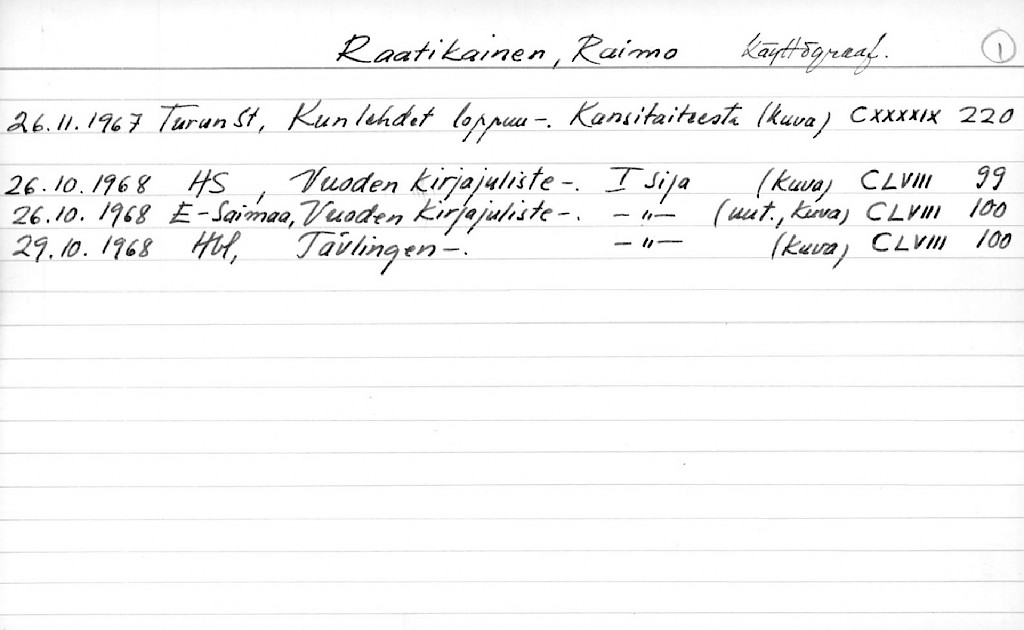 Raatikainen, Raimo Käyttögraaf. 1
26.11.1967 Turun St, Kun lehdet loppuu-. Kansitaiteesta (kuva) CXXXXIX 220
26.10.1968 HS, Vuoden Kirjajuliste-. I sija (kuva) CLVIII 99
26.10.1968 E-Saimaa, Vuoden Kirjajuliste-. -"- (uut., kuva) CLVIII 100
29.10.1968 Hbl, Tävlingen-. -"- (kuva) CLVIII 100